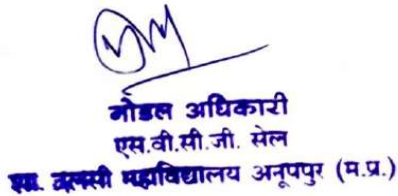 नोडल अधिकारी
एस.वी.सी.जी. सेल
शा. तुलसी महाविद्यालय अनूपपुर (म.प्र.)